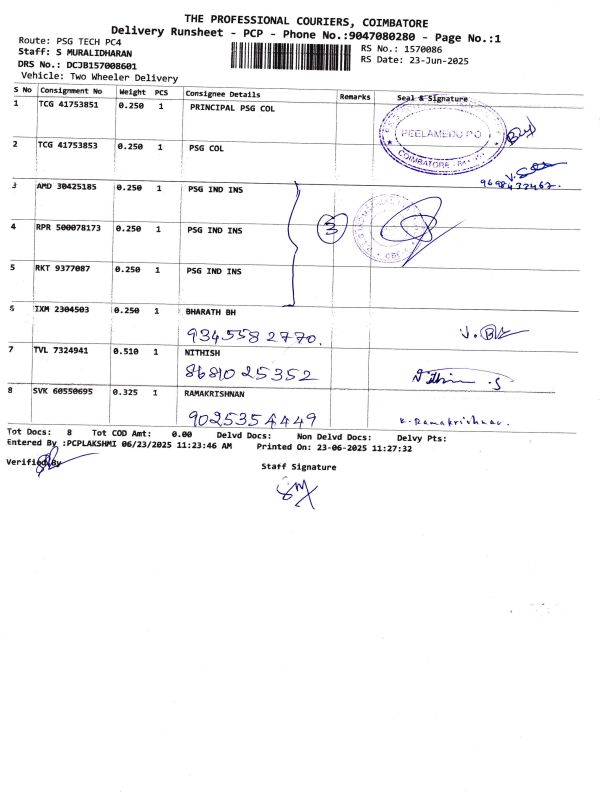 THE PROFESSIONAL COURIERS, COIMBATORE
Delivery Runsheet - PCP - Phone No.:9047080280 - Page No.:1
Route: PSG TECH PC4
Staff: S MURALIDHARAN
DRS No.: DCJB157008601
Vehicle: Two Wheeler Delivery
RS No.: 1570086
RS Date: 23-Jun-2025
S No Consignment No Weight PCS Consignee Details Remarks Seal & Signature
1 TCG 41753851 0.250 1 PRINCIPAL PSG COL
PEELAMEDU P.O
COIMBATORE
2 TCG 41753853 0.250 1 PSG COL
3 AMD 30425185 0.250 1 PSG IND INS
4 RPR 500078173 0.250 1 PSG IND INS
3
5 RKT 9377087 0.250 1 PSG IND INS
6 IXM 2304503 0.250 1 BHARATH BH
9345582770.
7 TVL 7324941 0.510 1 NITHISH
8681025352 Nithin .S
8 SVK 60550695 0.325 1 RAMAKRISHNAN
9025354449 K. Ramakrishnan.
Tot Docs: 8 Tot COD Amt: 0.00 Delvd Docs: Non Delvd Docs: Delvy Pts:
Entered By :PCPLAKSHMI 06/23/2025 11:23:46 AM Printed On: 23-06-2025 11:27:32
Verified By
Staff Signature